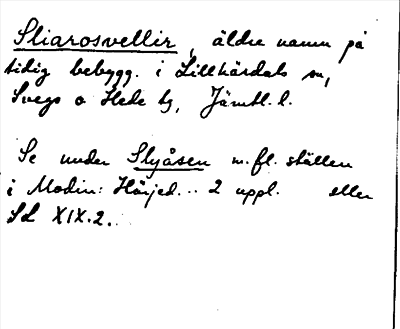 Sliarosvellir, äldre namn på
tidig bebygg. i Lillhärdals sn,
Svegs o Hede tg, Jämtl. l.
Se under Slyåsen m.fl. ställen
i Modin: Härjed... 2 uppl. eller
SL XIX.2.